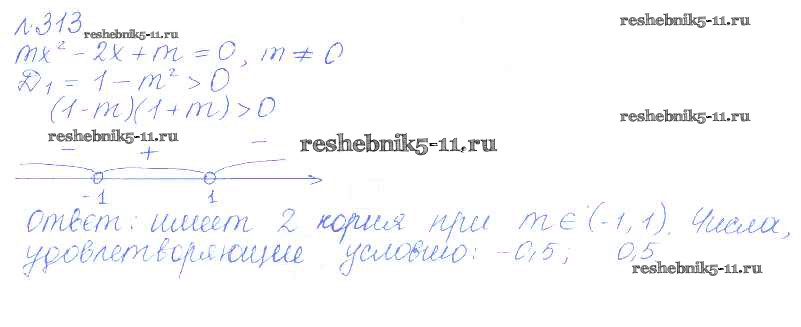 №313 reshebnik5-11.ru reshebnik5-11.ru
mx² - 2x + m = 0, m ≠ 0
D₁ = 1 - m² > 0
(1-m)(1+m) > 0 reshebnik5-11.ru
reshebnik5-11.ru reshebnik5-11.ru
- + -
-1 1
Ответ: имеет 2 корня при m ∈ (-1, 1). Числа,
удовлетворяющие условию: -0,5; 0,5
reshebnik5-11.ru